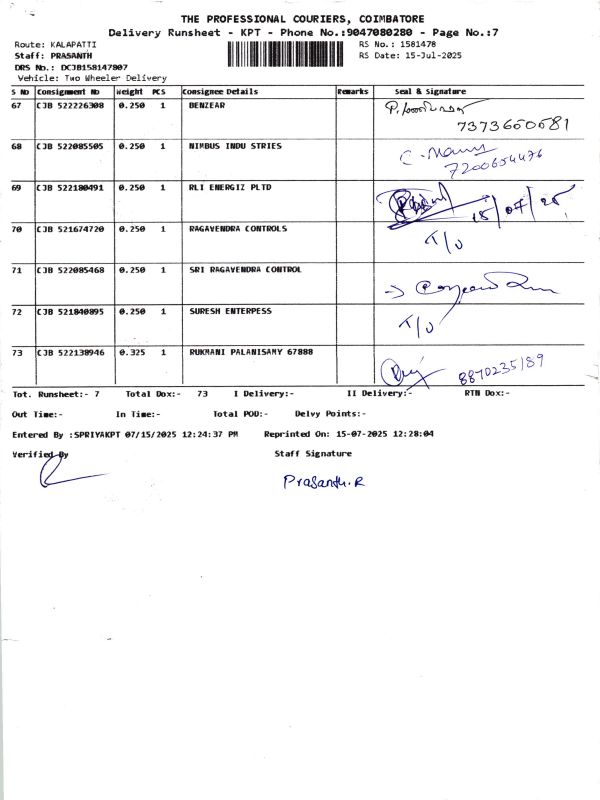 THE PROFESSIONAL COURIERS, COIMBATORE
Delivery Runsheet - KPT - Phone No.:9047080280 - Page No.:7
Route: KALAPATTI
RS No.: 1581478
Staff: PRASANTH
RS Date: 15-Jul-2025
DRS No.: DCJB158147807
Vehicle: Two Wheeler Delivery
S No Consignment No Weight PCS Consignee Details Remarks Seal & Signature
67 CJB 522226308 0.250 1 BENZEAR
7373650581
68 CJB 522085505 0.250 1 NIMBUS INDU STRIES
7200654476
69 CJB 522180491 0.250 1 RLI ENERGIZ PLTD
15/07/25
70 CJB 521674720 0.250 1 RAGAVENDRA CONTROLS
T/U
71 CJB 522085468 0.250 1 SRI RAGAVENDRA CONTROL
72 CJB 521840895 0.250 1 SURESH ENTERPESS
T/U
73 CJB 522138946 0.325 1 RUKMANI PALANISAMY 67888
8870235189
Tot. Runsheet:- 7 Total Dox:- 73 I Delivery:- II Delivery:- RTN Dox:-
Out Time:- In Time:- Total POD:- Delvy Points:-
Entered By :SPRIYAKPT 07/15/2025 12:24:37 PM Reprinted On: 15-07-2025 12:28:04
Verified By Staff Signature
Prasanth.R